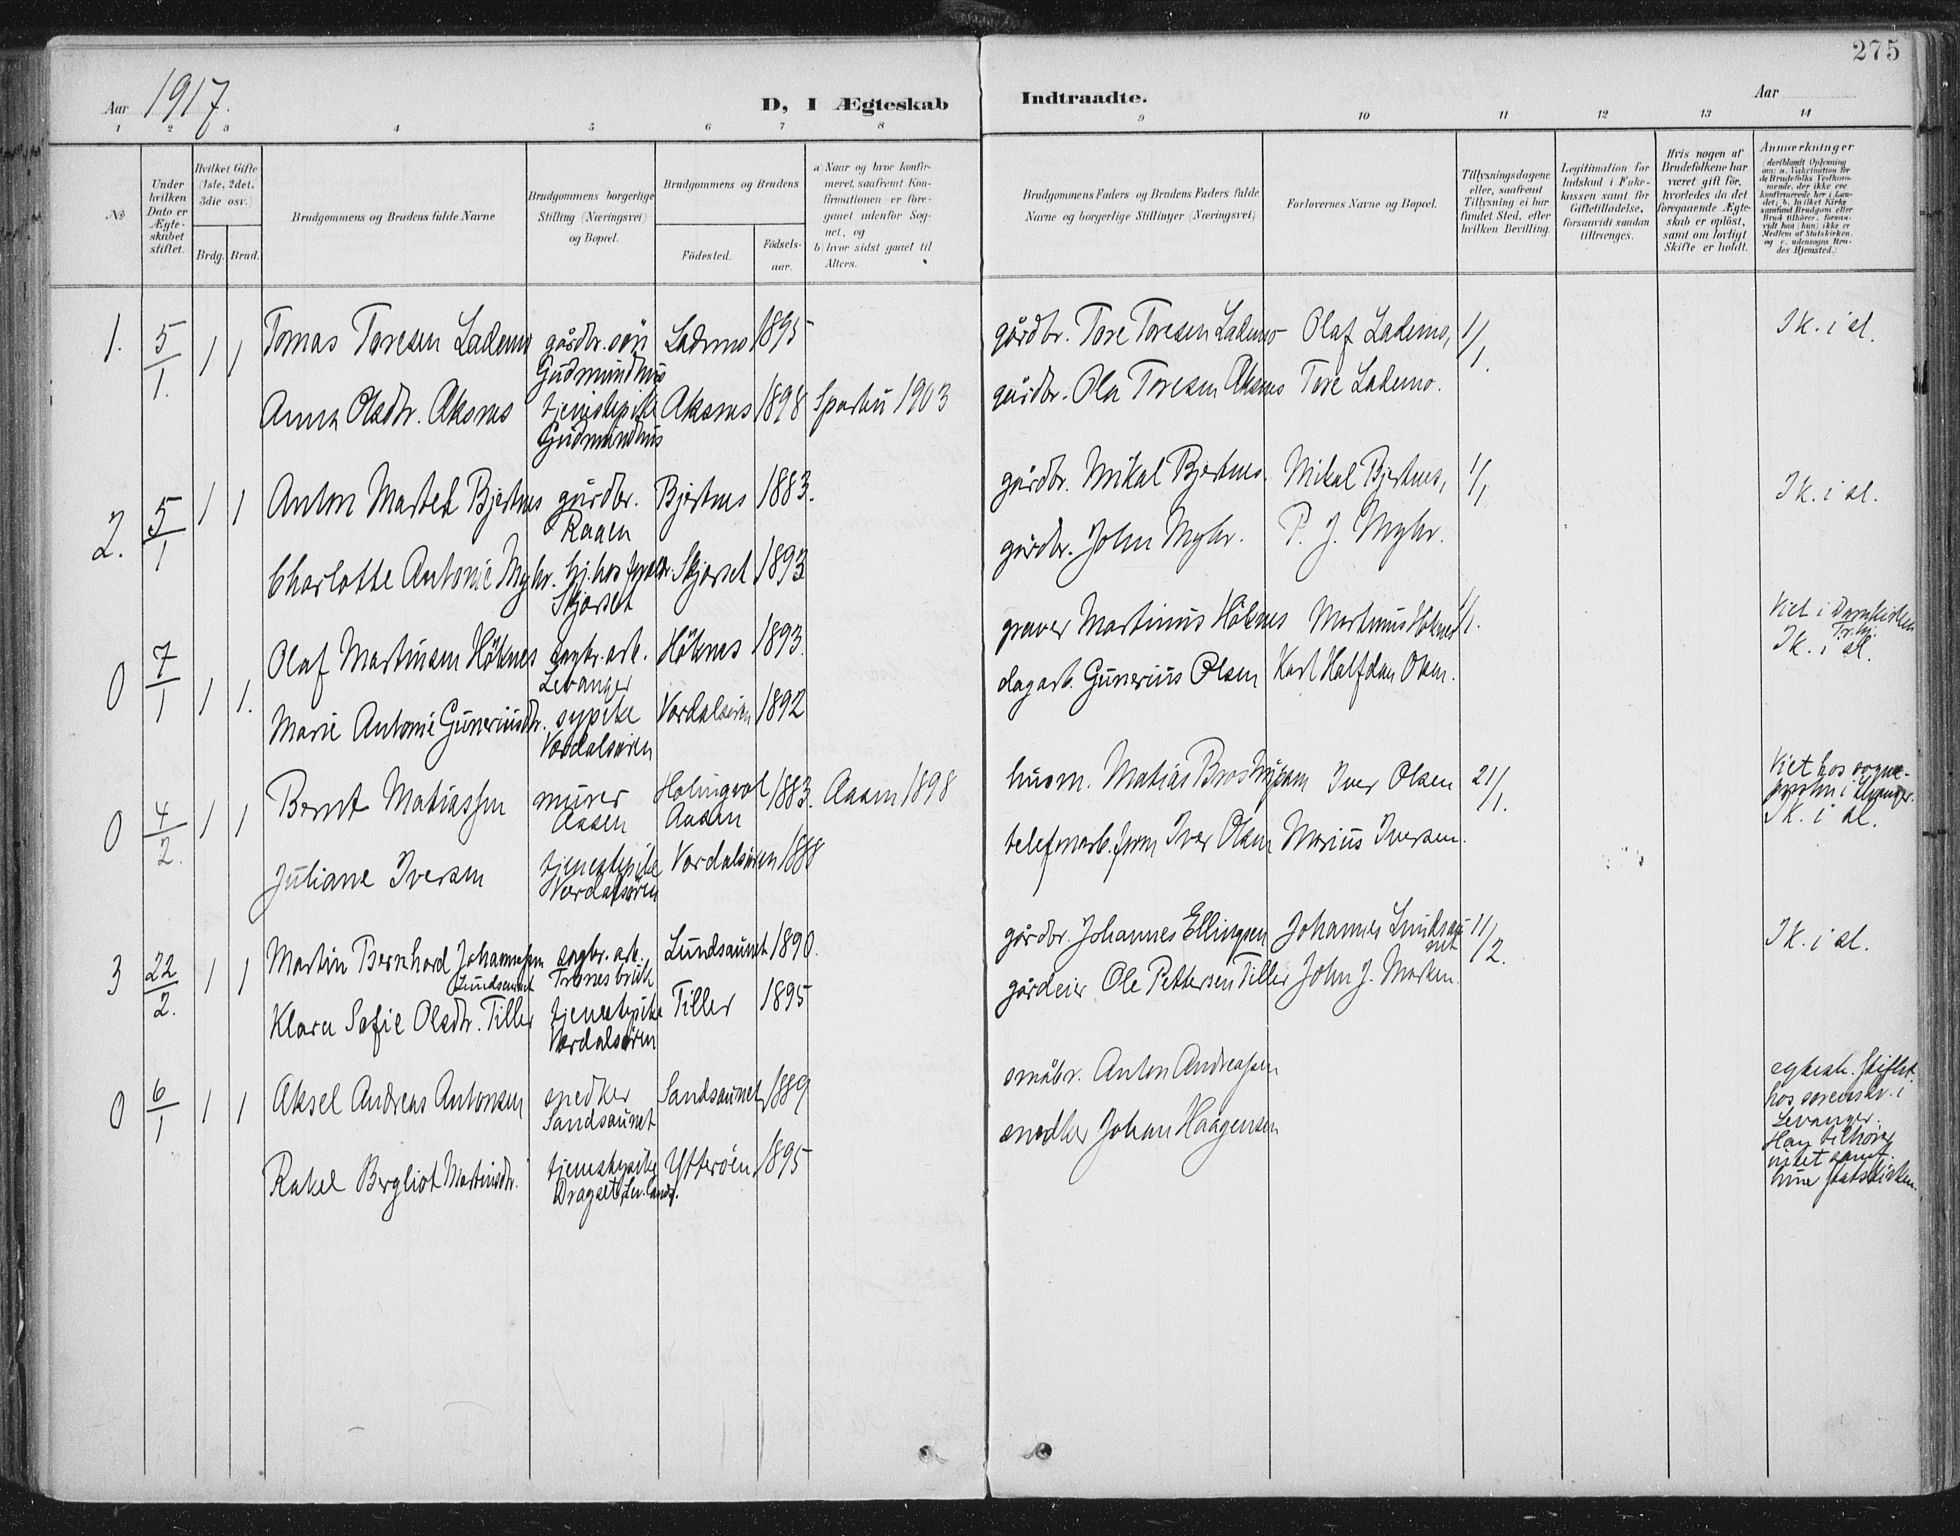 275
Aar 1917.
D, I Ægteskab Indtraadte.
Aar
1 2 3 4 5 6 7 8 9 10 11 12 13 14
No
Under hvilken Dato er Ægteskabet stiftet.
Hvilket Gifte (1ste, 2det, 3die osv.)
Brdg. Brud.
Brudgommens og Brudens fulde Navne
Brudgommens borgerlige Stilling (Næringsvei) og Bopæl.
Brudgommens og Brudens
Fødested.
Fødselsaar.
a) Naar og hvor konfirmeret, saafremt Konfirmationen er foregaaet udenfor Sognet, og
b) hvor sidst gaaet til Alters.
Brudgommens Faders og Brudens Faders fulde Navne og borgerlige Stillinger (Næringsvei)
Forlovernes Navne og Bopæl.
Tillysningsdagene eller, saafremt Tillysning ei har fundet Sted, efter hvilken Bevilling.
Legitimation for Indskud i Enkekassen samt for Giftetilladelse, forsaavidt saadan tiltrænges.
Hvis nogen af Brudefolkene har været gift før, hvorledes da det foregaaende Ægteskab er opløst, samt om lovligt Skifte er holdt.
Anmerkninger
1. 5/1. 1 1 Tomas Toresen Lademo gårdbr. søn Lademo 1895 gårdbr. Tore Toresen Lademo Olaf Lademo, 1/1. Ik. i sl.
Gudmundhus
Anna Olsdtr. Aksnes tjenestepike Aksnes 1898 Sparbu 1903 gårdbr. Ola Toresen Aksnes Tore Lademo.
Gudmundhus
2. 5/1 1 1 Anton Bjertnes gårdbr. Bjertnes 1883. gårdbr. Mikal Bjertnes. Mikal Bjertnes, 1/1 Ik. i sl.
Raaen
Charlotte Antonie Myhr. Skjørset 1893 gårdbr. John Myhr. P. J. Myhr.
Skjørset
0 7/1 1 1. Olaf Martinsen Høknes sagbr. arb. Høknes 1893. graver Martinus Høknes Martinus Høknes 1/1. Viet i Domkirken Tr.hj.
Levanger Ik. i sl.
Marie Antonie Guneriusdtr. sypike Værdalsøren 1892 dagarb. Gunerius Olsen Karl Halfdan Olsen.
Værdalsøren
0 4/2. 1 1 Bernt Matiassen murer 1883. Aasen 1898 husm. Matias Iver Olsen 21/1. Viet hos sogne-
Aasen Aasen presten i Levanger.
Ik. i sl.
Juliane Iversen tjenestepike Værdalsøren 1888 telefonarb. Iver Olsen Marius Iversen.
Værdalsøren
3 22/2. 1 1 Martin Bernhard Johannessen sagbr. arb. Lundsaunet 1890. gårdbr. Johannes Ellingsen Johannes Lundsaunet 11/2. Ik. i sl.
Lundsaunet Trones bruk
Klara Sofie Olsdtr. Tiller tjenestepike Tiller 1895 gårdeier Ole Pettersen Tiller John J. Marken.
Værdalsøren
0 6/1 1 1 Aksel Andreas Antonsen snedker Sandsaunet 1889 småbr. Anton Andreassen egtesk. stiftet
Sandsaunet hos sorenskr. i
Levanger.
Rakel Bergliot Martinsdtr. tjenestepike Ytterøen 1895 snedker Johan Haagensen Han tilhører
Dragset, Lev. Lands. intet samf.
hun statskirken.